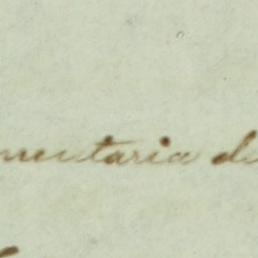 mentaria de